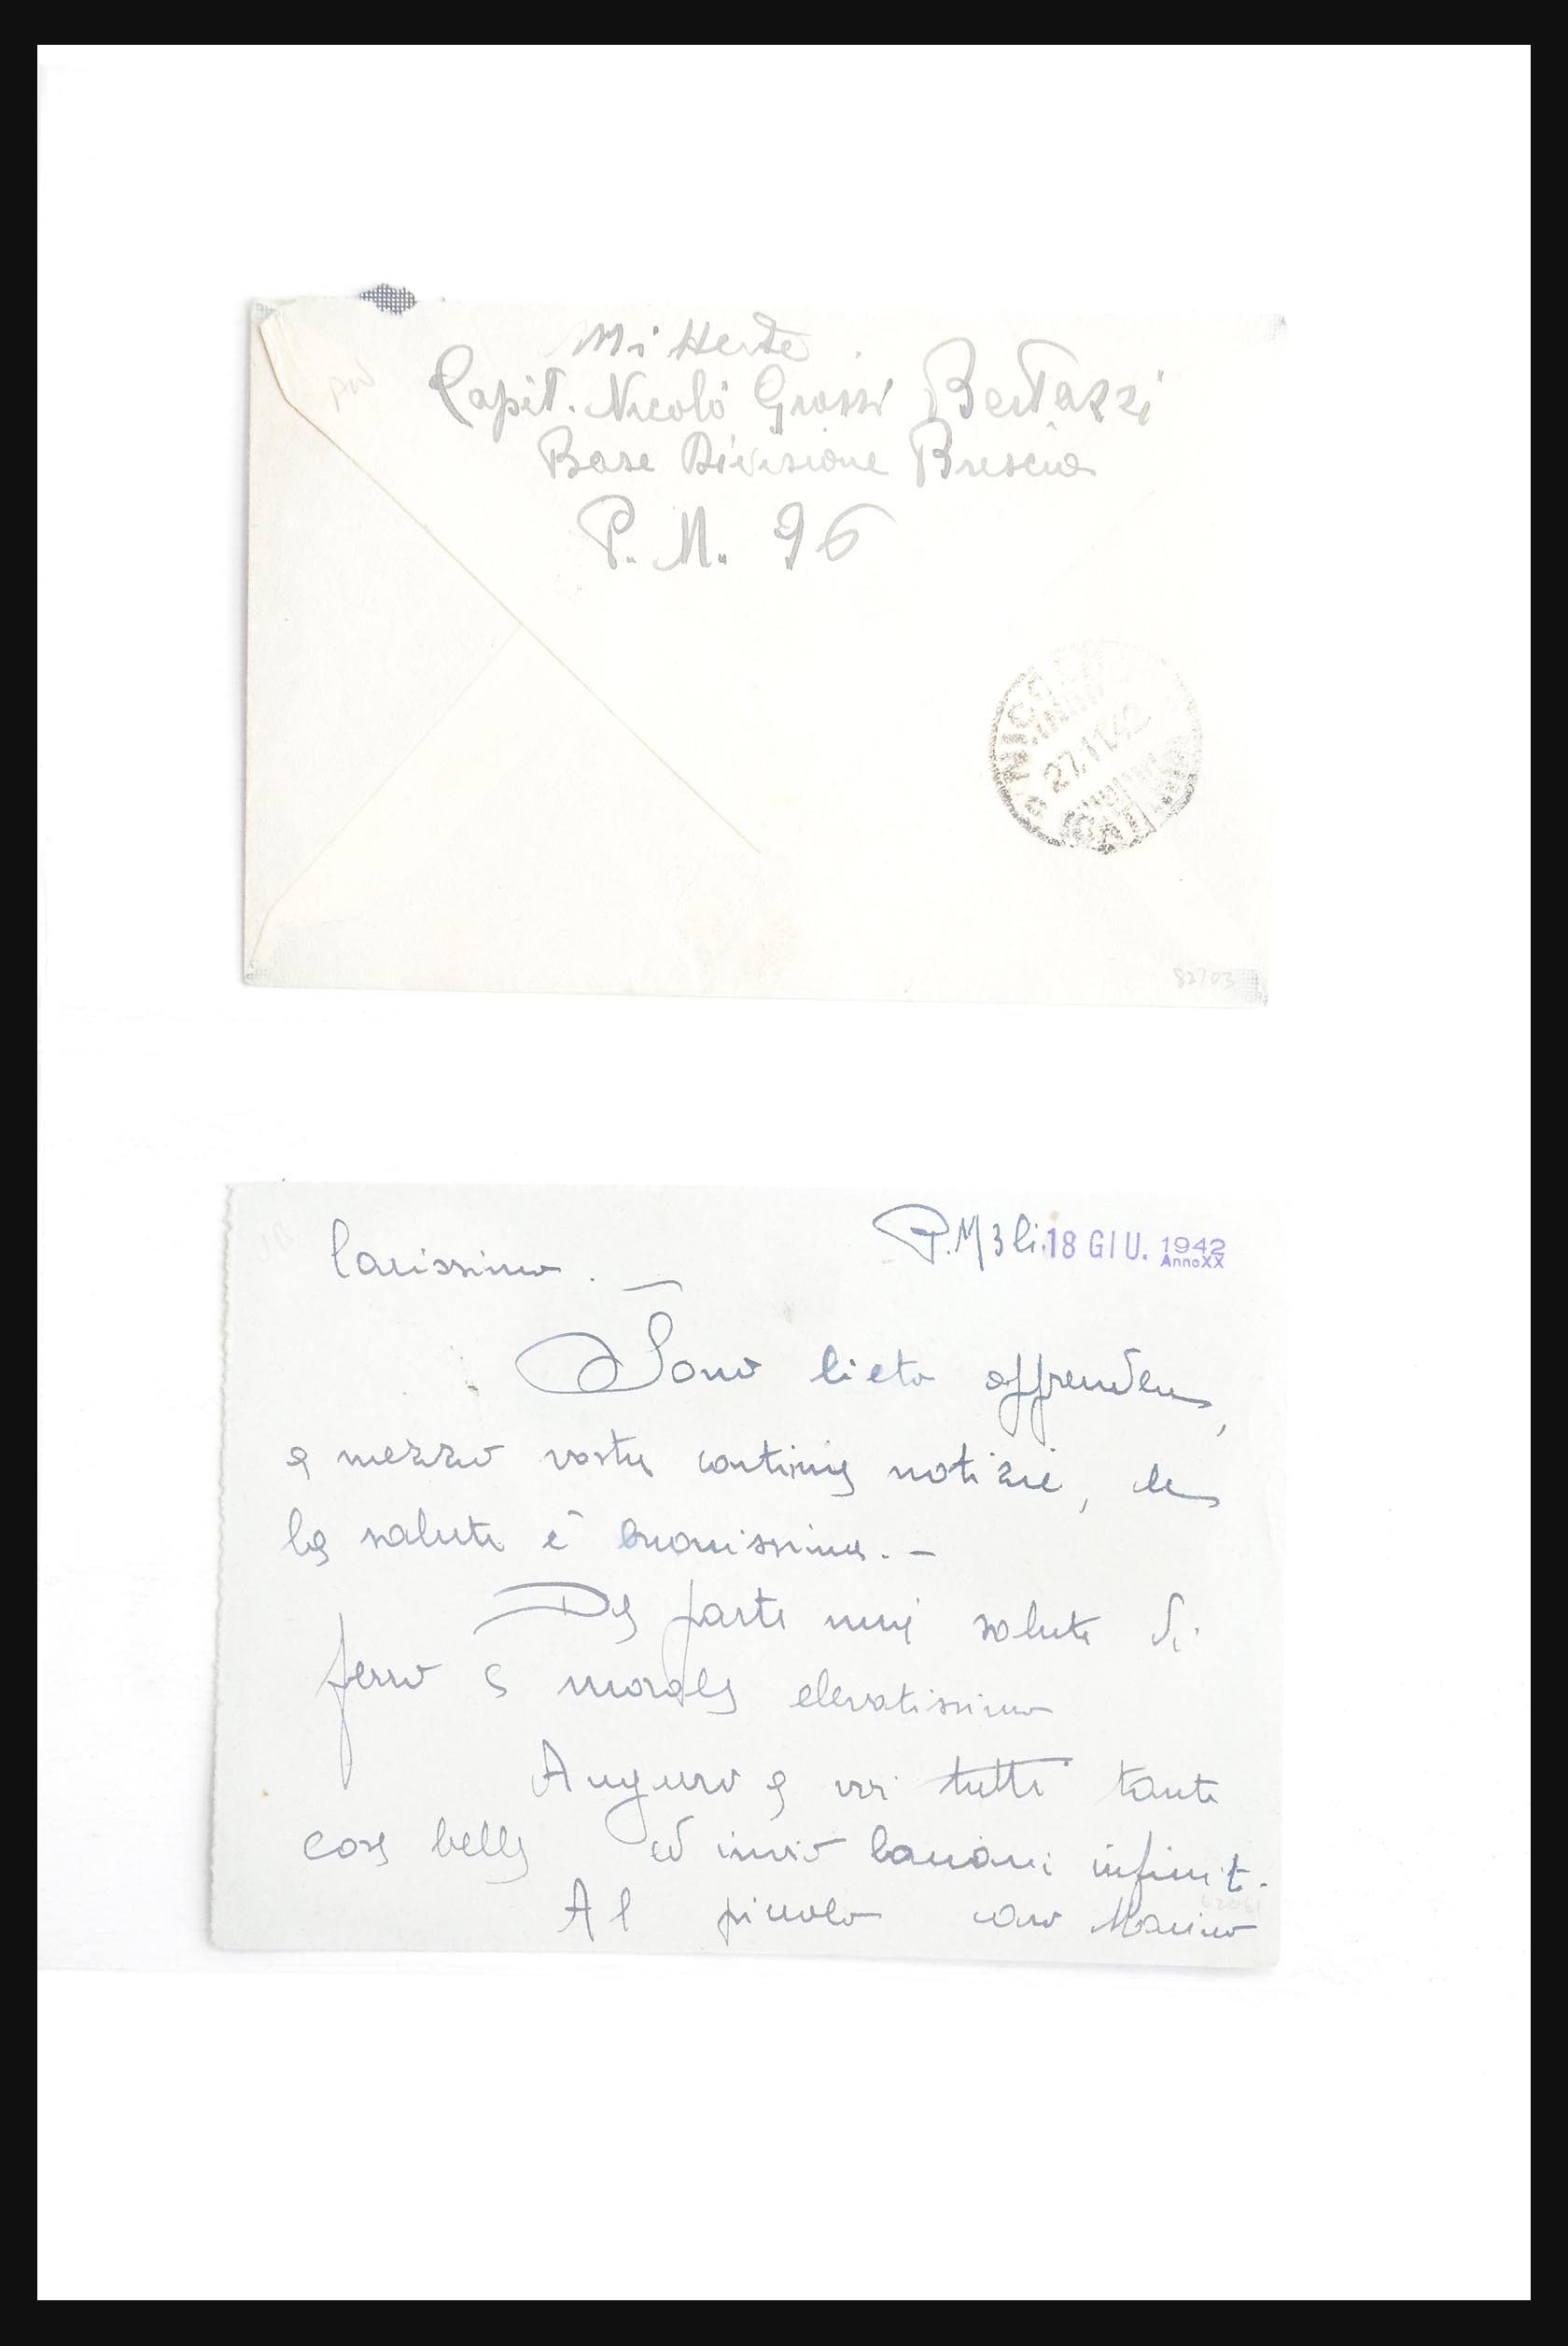 Mittente
Capit. Nicolò Grossi Bertazzi
Base Divisione Brescia
P. M. 96
27.11.42
82703
P.M 3 li 18 GIU. 1942
Anno XX
Carissimo. —
Sono lieto apprendere,
a mezzo vostre continue notizie, che
la salute è buonissima. —
Da parte mia salute di
ferro e morale elevatissimo
Auguro a voi tutti tante
cose belle ed invio bacioni infinit.
Al piccolo caro Marino